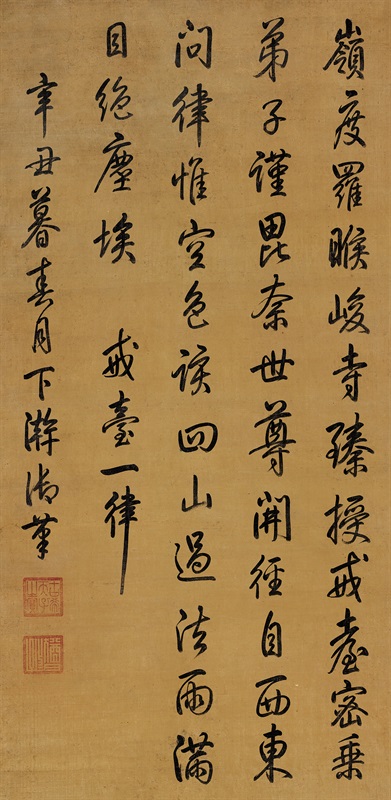 嶺度羅睺峻寺臻授戒臺密乗
弟子謹毘奈世尊開徑自西東
問律惟空色該四山過法雨滿
目絶塵埃　戒臺一律
辛丑暮春月下澣御筆